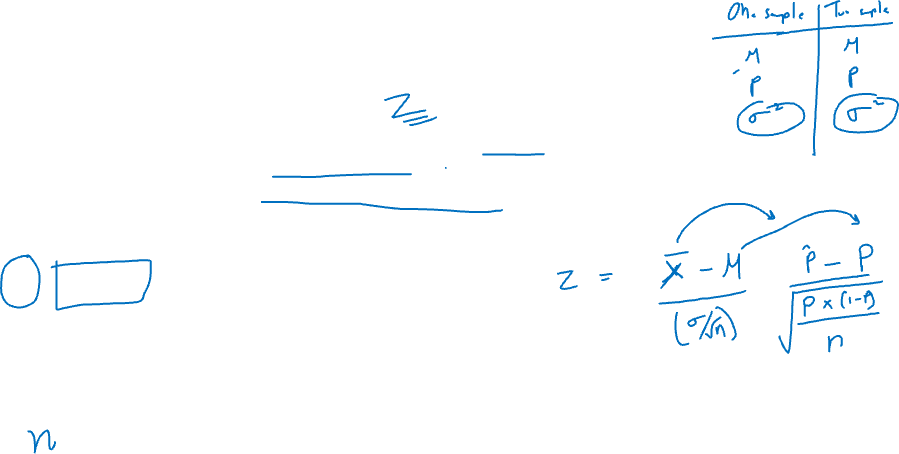 One sample Two sample
M M
P P
σ² σ²
Z
Z = (X̄ - M) / (σ/√n) (p̂ - P) / √(P × (1-P) / n)
n